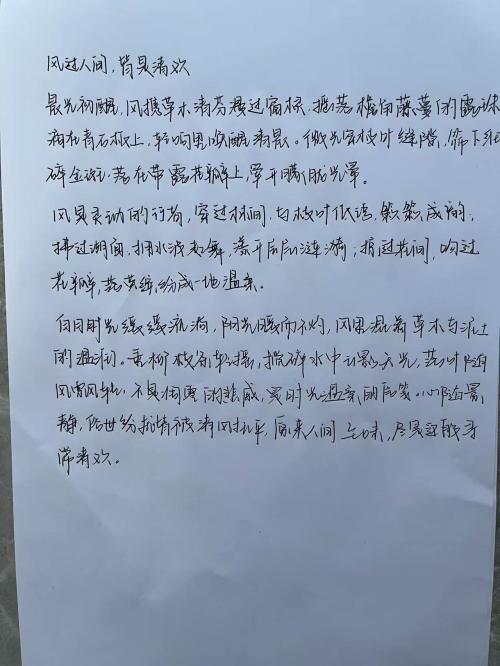 风过人间，皆是清欢
晨光初醒，风携草木清芬漫过窗棂，摇落檐角藤蔓的露珠
滴在青石板上，轻响里唤醒清晨。微光穿枝叶缝隙，筛下细
碎金斑，落在带露花瓣上，晕开朦胧光泽。
风是灵动的行者，穿过林间，与枝叶低语，簌簌成韵，
拂过湖面，拥水波起舞，漾开层层涟漪；掠过花间，吻过
花瓣，落英缤纷成一地温柔。
白日时光缓缓流淌，阳光暖而不灼，风里混着草木与泥土
的温润。垂柳枝条轻摇，摇碎水中云影天光，落叶随
风翩跹，不是凋零的悲戚，是时光温柔的信笺。心随景
静，俗世纷扰皆被清风抚平，原来人间至味，尽是这般寻
常清欢。